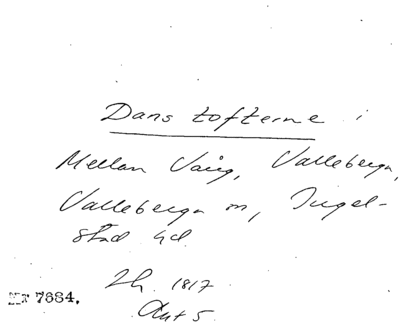 Dans tofterne i
Mellan Vång, Valleberga,
Valleberga sn, Ingel-
stad hd
Lh. 1817
Akt 5
Nr 7684.